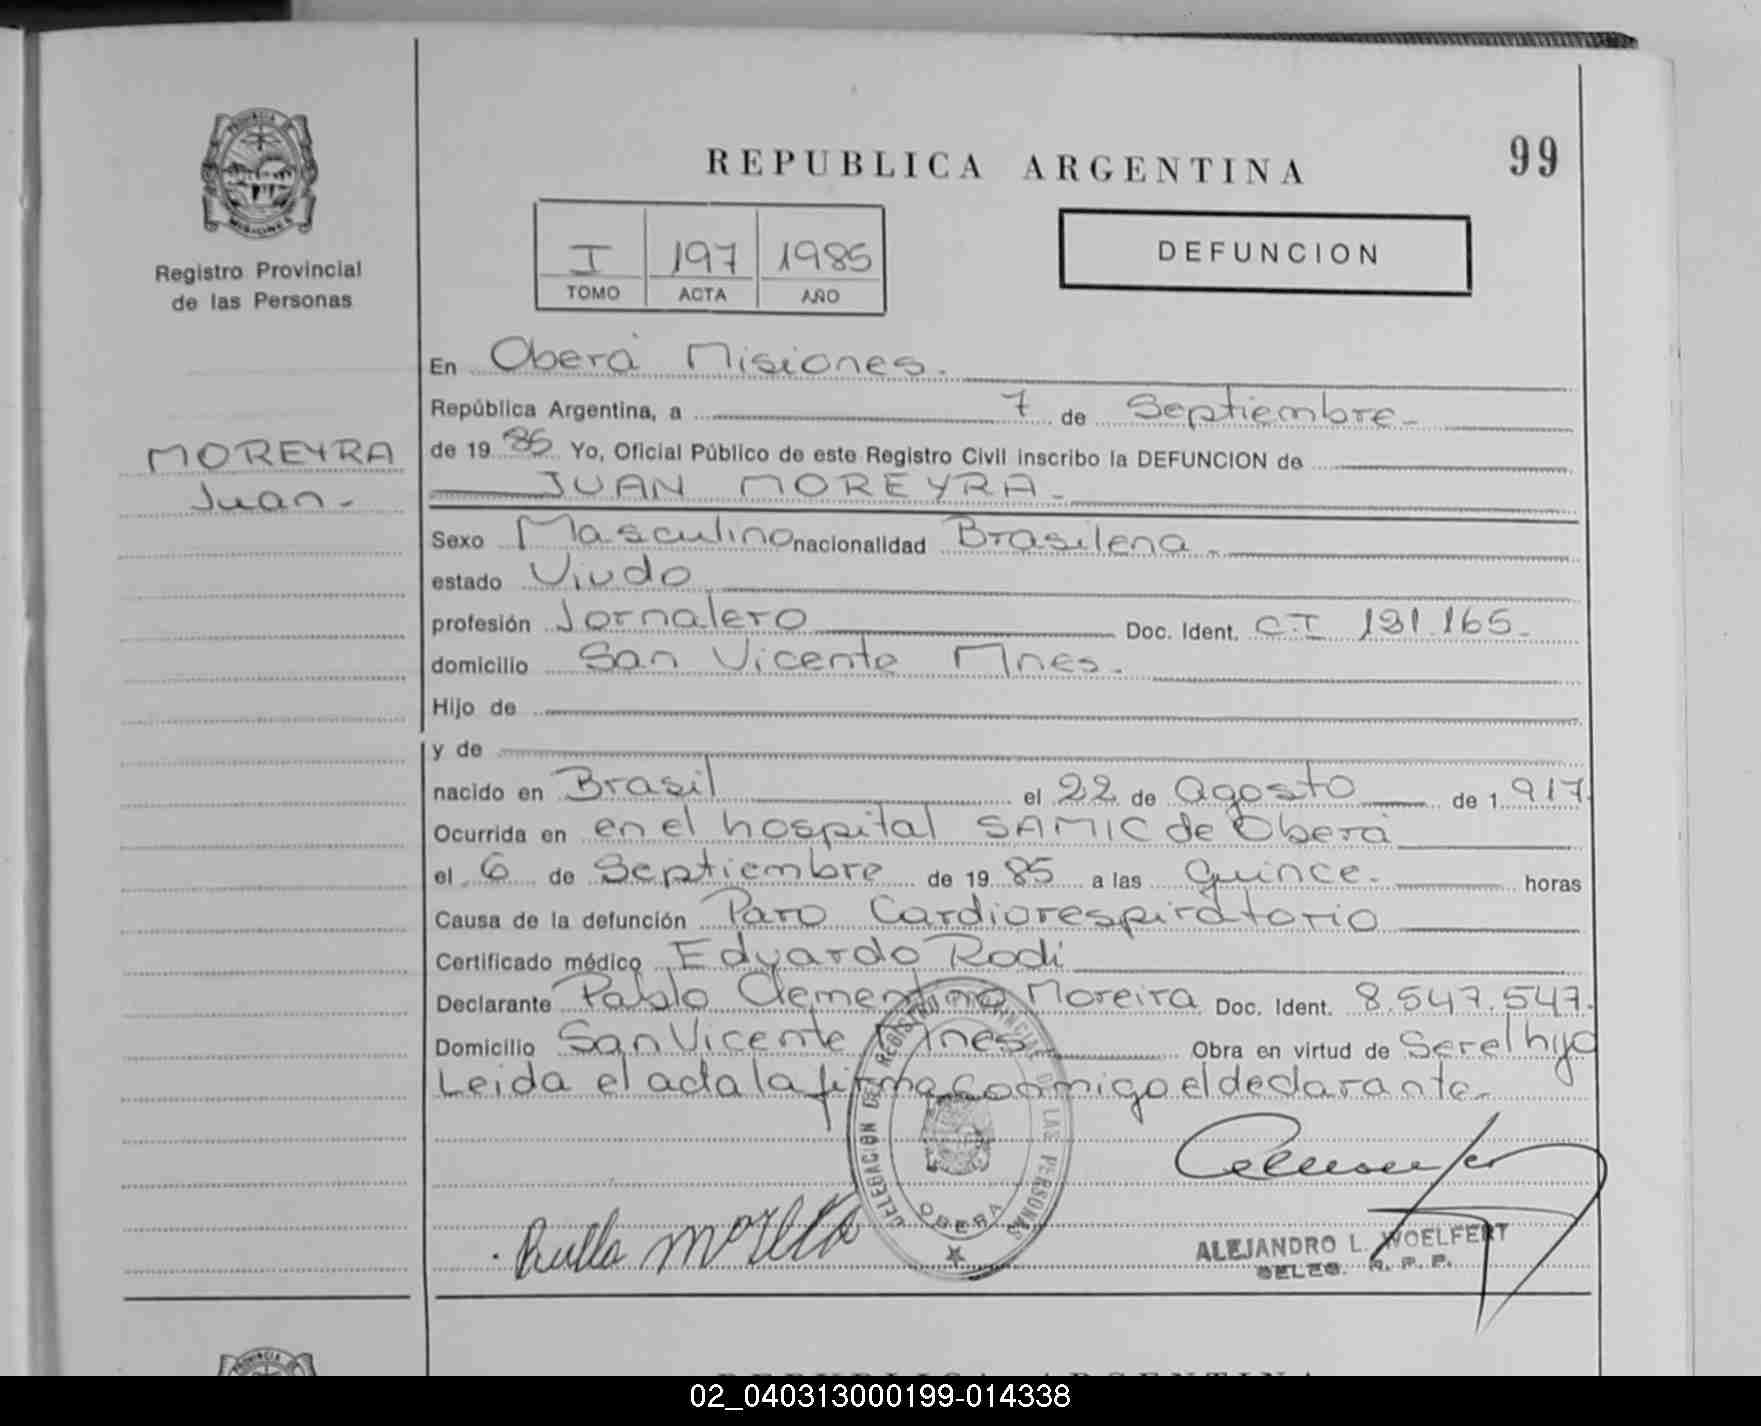 PROVINCIA DE
MISIONES
Registro Provincial
de las Personas
REPUBLICA ARGENTINA
99
I 197 1985
TOMO ACTA AÑO
DEFUNCION
En Oberá Misiones.
República Argentina, a 7 de Septiembre
de 19 85 Yo, Oficial Público de este Registro Civil inscribo la DEFUNCION de
MOREYRA
Juan
JUAN MOREYRA
Sexo Masculino nacionalidad Brasilena
estado Viudo
profesión Jornalero Doc. Ident. C.I 131.165
domicilio San Vicente Mnes.
Hijo de
y de
nacido en Brasil el 22 de Agosto de 1 917
Ocurrida en en el hospital SAMIC de Oberá
el 6 de Septiembre de 19 85 a las quince horas
Causa de la defunción Paro Cardiorespiratorio
Certificado médico Eduardo Rodi
Declarante Pablo Clementino Moreira Doc. Ident. 8.547.547
Domicilio San Vicente Mnes Obra en virtud de Ser el hijo
Leida el acta la firma conmigo el declarante
DELEGACION DEL REGISTRO PROVINCIAL DE LAS PERSONAS
OBERA
ALEJANDRO L. WOELFERT
DELEG. R. P. P.
REPUBLICA ARGENTINA
02_040313000199-014338